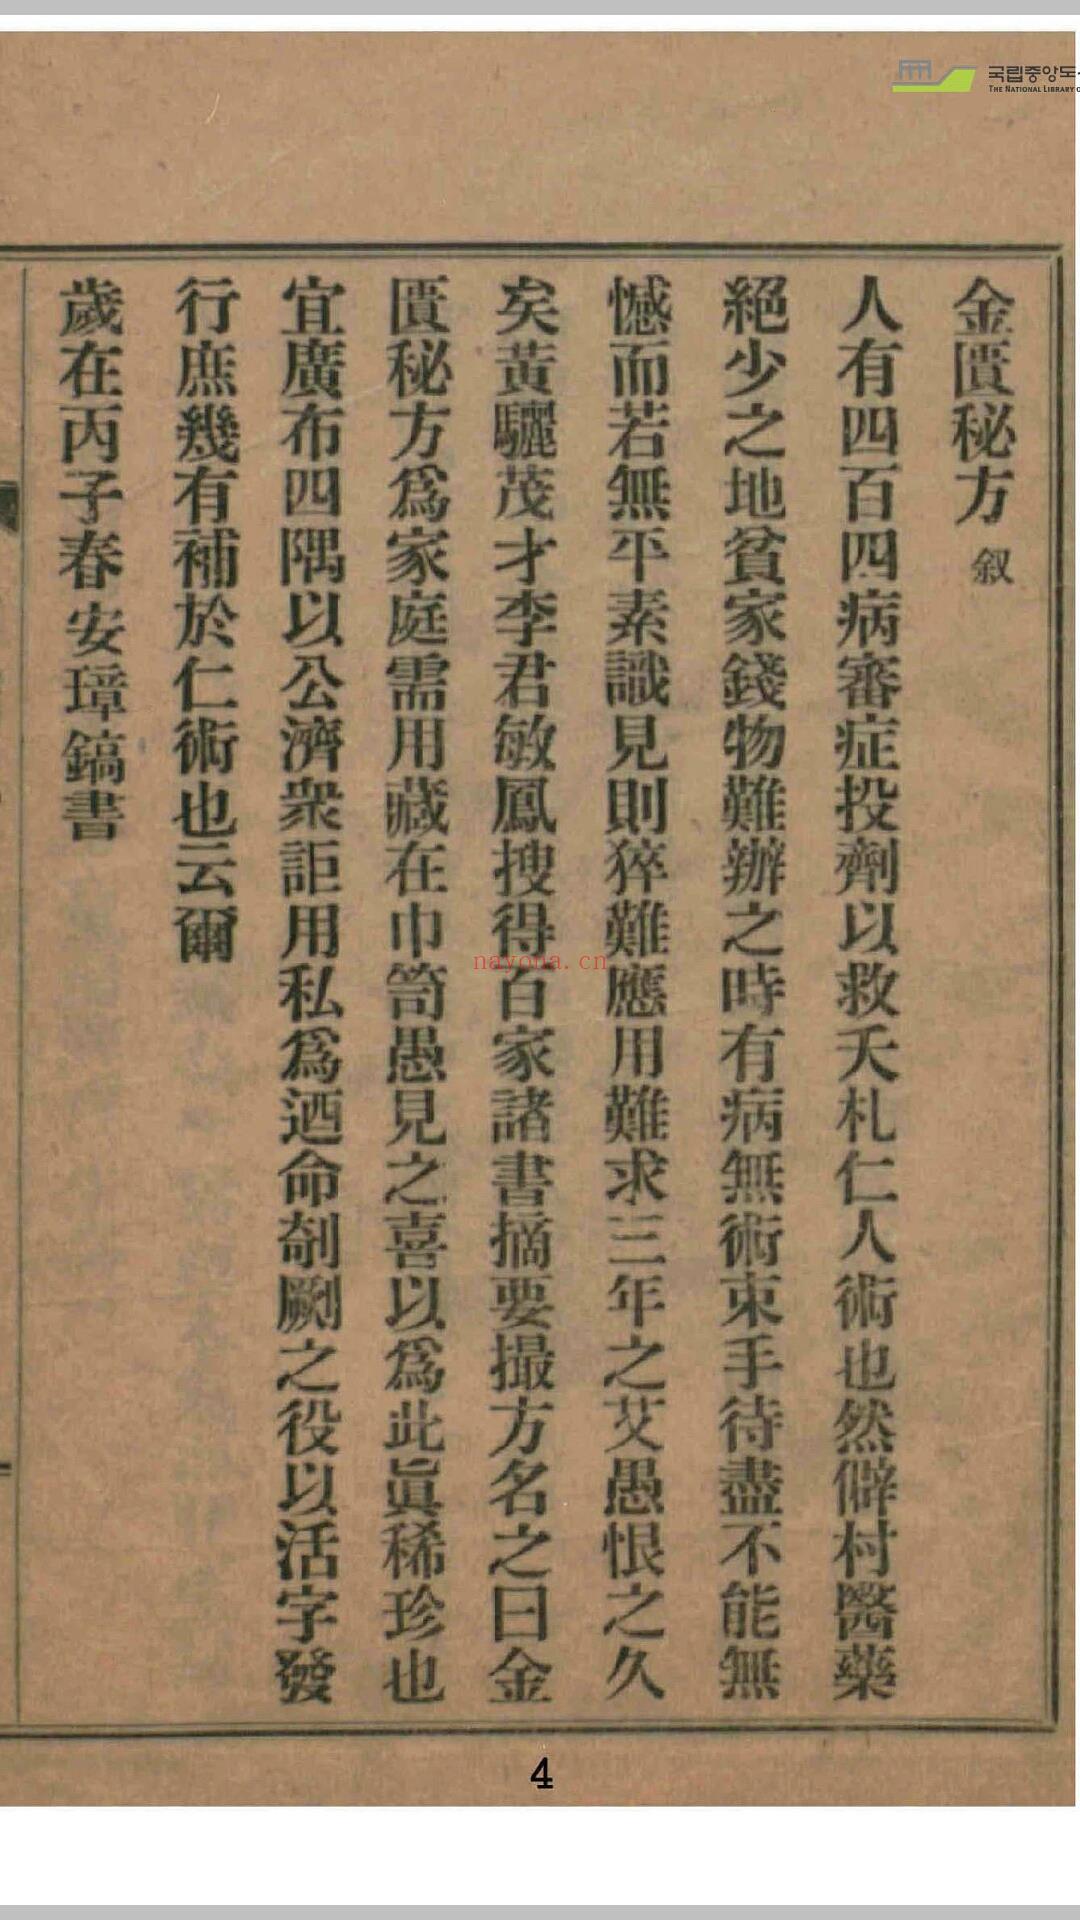 국립중앙도
THE NATIONAL LIBRARY O
金匱秘方 叙
人有四百四病審症投劑以救夭札仁人術也然僻村醫藥
絕少之地貧家錢物難辦之時有病無術束手待盡不能無
憾而若無平素識見則猝難應用難求三年之艾愚恨之久
矣黃驪茂才李君敏鳳搜得百家諸書摘要撮方名之曰金
匱秘方爲家庭需用藏在巾笥愚見之喜以爲此眞稀珍也
宜廣布四隅以公濟衆詎用私爲迺命剞劂之役以活字發
行庶幾有補於仁術也云爾
歲在丙子春安璋鎬書
nayona.cn
4